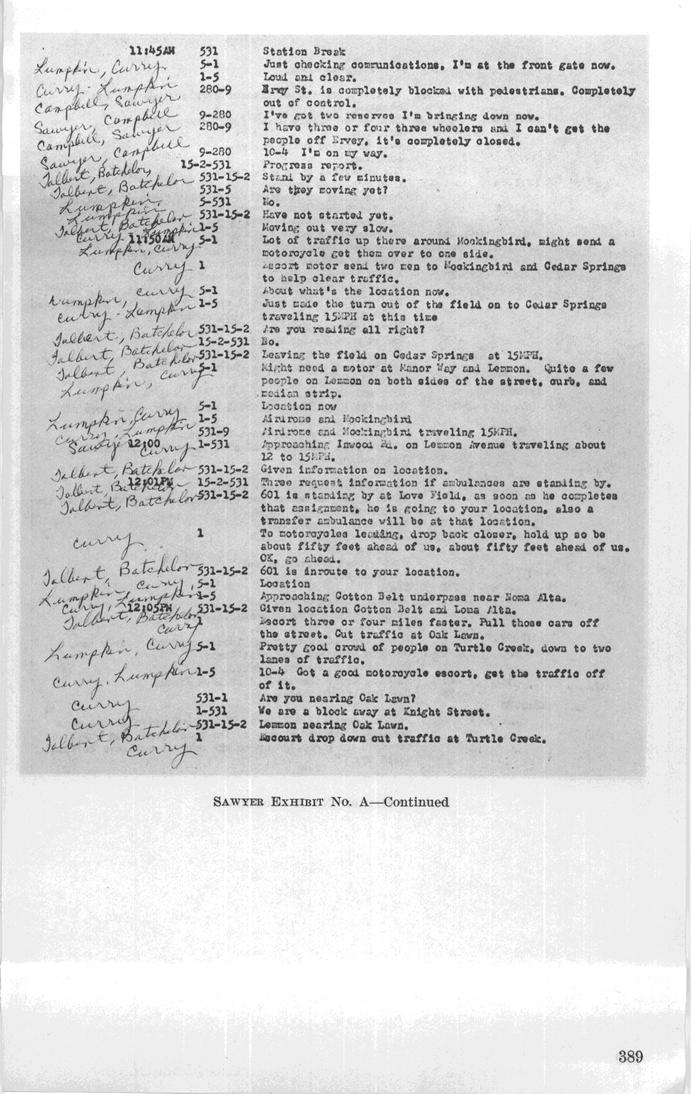 11:45AM 531 Station Break
Lumpkin, Curry 5-1 Just checking communications, I'm at the front gate now.
Curry - Lumpkin 1-5 Loud and clear.
Campbell, Sawyer 280-9 Ervey St. is completely blocked with pedestrians. Completely
out of control.
Sawyer, Campbell 9-280 I've got two reserves I'm bringing down now.
Campbell, Sawyer 280-9 I have three or four three wheelers and I can't get the
people off Ervey, it's completely closed.
Sawyer, Campbell 9-280 10-4 I'm on my way.
Talbert, Batchelor, 15-2-531 Progress report.
Talbert, Batchelor 531-15-2 Stand by a few minutes.
Lumpkin, 531-5 Are they moving yet?
Lumpkin 5-531 No.
Talbert, Batchelor 531-15-2 Have not started yet.
Curry, Lumpkin 1-5 Moving out very slow.
11:50AM
Lumpkin, Curry 5-1 Lot of traffic up there around Mockingbird, might send a
motorcycle get them over to one side.
Curry 1 Escort motor send two men to Mockingbird and Cedar Springs
to help clear traffic.
Lumpkin, Curry 5-1 About what's the location now.
Curry - Lumpkin 1-5 Just made the turn out of the field on to Cedar Springs
traveling 15MPH at this time
Talbert, Batchelor 531-15-2 Are you reading all right?
Talbert, Batchelor 15-2-531 No.
Talbert, Batchelor 531-15-2 Leaving the field on Cedar Springs at 15MPH.
Lumpkin, Curry 5-1 Might need a motor at Manor Way and Lemmon. Quite a few
people on Lemmon on both sides of the street, curb, and
median strip.
Lumpkin, Curry 5-1 Location now
Curry, Lumpkin 1-5 Airdrome and Mockingbird
Sawyer 531-9 Airdrome and Mockingbird traveling 15MPH.
12:00 Curry 1-531 Approaching Inwood Rd. on Lemmon Avenue traveling about
12 to 15MPH.
Talbert, Batchelor 531-15-2 Given information on location.
12:01PM
Talbert, Batchelor 15-2-531 Three request information if ambulances are standing by.
Talbert, Batchelor 531-15-2 601 is standing by at Love Field, as soon as he completes
that assignment, he is going to your location, also a
transfer ambulance will be at that location.
Curry 1 To motorcycles leading, drop back closer, hold up so be
about fifty feet ahead of us, about fifty feet ahead of us.
OK, go ahead.
Talbert Batchelor 531-15-2 601 is inroute to your location.
Lumpkin, Curry, 5-1 Location
Curry, Lumpkin 1-5 Approaching Cotton Belt underpass near Noma Alta.
12:05PM
Talbert, Batchelor 531-15-2 Given location Cotton Belt and Loma Alta.
Curry 1 Escort three or four miles faster. Pull those cars off
the street. Cut traffic at Oak Lawn.
Lumpkin, Curry 5-1 Pretty good crowd of people on Turtle Creek, down to two
lanes of traffic.
Curry, Lumpkin 1-5 10-4 Got a good motorcycle escort, get the traffic off
of it.
Curry 531-1 Are you nearing Oak Lawn?
Curry 1-531 We are a block away at Knight Street.
Talbert, Batchelor 531-15-2 Lemmon nearing Oak Lawn.
Curry 1 Escourt drop down cut traffic at Turtle Creek.
SAWYER EXHIBIT NO. A—Continued
389